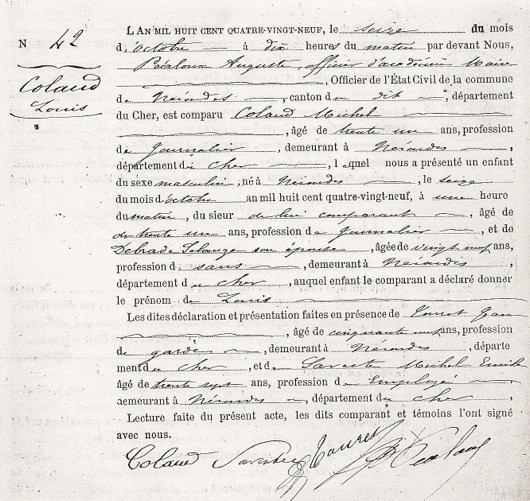 N 42
Coland
Louis
L'AN MIL HUIT CENT QUATRE-VINGT-NEUF, le seize du mois
d'octobre à dix heures du matin par devant Nous,
Auguste, officier d'académie Maire
, Officier de l'État Civil de la commune
de Nérondes, canton du dit, département
du Cher, est comparu Coland Michel
, âgé de trente un ans, profession
de Journalier, demeurant à Nérondes
département du Cher, lequel nous a présenté un enfant
du sexe masculin, né à Nérondes, le seize
du mois d'octobre an mil huit cent quatre-vingt-neuf, à une heure
du matin, du sieur de lui comparant, âgé de
de trente un ans, profession de Journalier, et de
Solange son épouse, âgée de vingt neuf ans,
profession de sans, demeurant à Nérondes,
département du Cher, auquel enfant le comparant a déclaré donner
le prénom de Louis
Les dites déclaration et présentation faites en présence de Jean
, âgé de cinquante ans, profession
de garde, demeurant à Nérondes, départe
ment du Cher, et de Michel Emile
âgé de trente sept ans, profession d'Employé
demeurant à Nérondes, département du Cher
Lecture faite du présent acte, les dits comparant et témoins l'ont signé
avec nous.
Coland